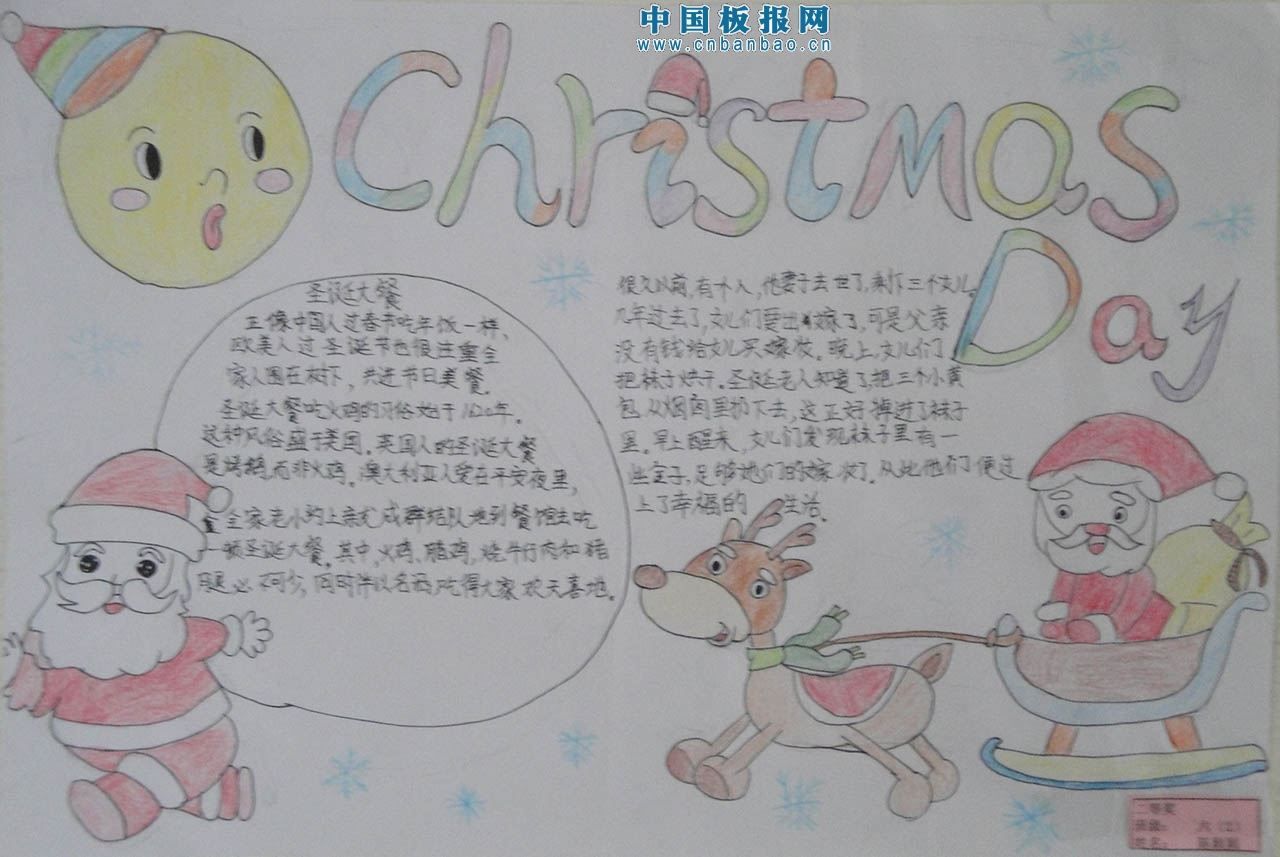 中国板报网
www.cnbanbao.cn
Christmas
Day
圣诞大餐
正像中国人过春节吃年饭一样、
欧美人过圣诞节也很注重全
家人围在树下，共进节日美餐。
圣诞大餐吃火鸡的习俗始于1620年。
这种风俗盛于美国。英国人的圣诞大餐
是烤鹅，而非火鸡。澳大利亚人爱在平安夜里，
全家老小约上亲友成群结队地到餐馆去吃
一顿圣诞大餐。其中，火鸡，腊鸡，烧牛仔肉和猪
腿必不可少，同时伴以名酒，吃得大家欢天喜地。
很久以前，有个人，他妻子去世了，剩下三个女儿。
几年过去了，女儿们要出嫁了，可是父亲
没有钱给女儿买嫁妆。晚上，女儿们
把袜子烘干。圣诞老人知道了，把三个小黄
包从烟囱里扔下去，这正好掉进了袜子
里。早上醒来，女儿们发现袜子里有一
些金子，足够她们的嫁妆了。从此他们便过
上了幸福的生活。
二等奖
班级： 六（2）
姓名：